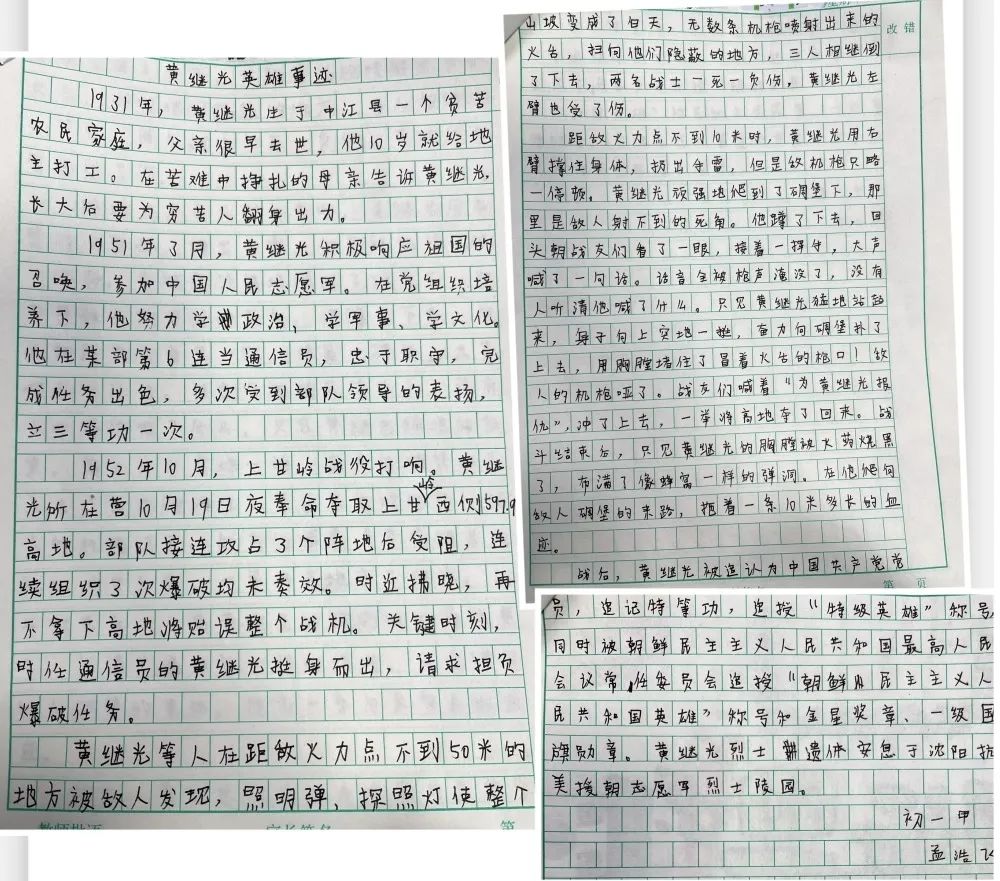 黄继光英雄事迹
1931年，黄继光生于中江县一个贫苦
农民家庭，父亲很早去世，他10岁就给地
主打工。在苦难中挣扎的母亲告诉黄继光，
长大后要为穷苦人翻身出力。
1951年3月，黄继光积极响应祖国的
召唤，参加中国人民志愿军。在党组织培
养下，他努力学政治、学军事、学文化。
他在某部第6连当通信员，忠于职守，完
成任务出色，多次受到部队领导的表扬，
立三等功一次。
1952年10月，上甘岭战役打响。黄继
光所在营10月19日夜奉命夺取上甘岭西侧597.9
高地。部队接连攻占3个阵地后受阻，连
续组织3次爆破均未奏效。时近拂晓，再
不拿下高地将贻误整个战机。关键时刻，
时任通信员的黄继光挺身而出，请求担负
爆破任务。
黄继光等人在距敌火力点不到50米的
地方被敌人发现，照明弹、探照灯使整个
教师批语 家长签名 第
改错
山坡变成了白天，无数条机枪喷射出来的
火舌，扫向他们隐蔽的地方，三人相继倒
了下去，两名战士一死一负伤，黄继光左
臂也受了伤。
距敌火力点不到10米时，黄继光用右
臂撑住身体，扔出手雷，但是敌机枪只略
一停顿。黄继光顽强地爬到了碉堡下，那
里是敌人射不到的死角。他蹲了下去，回
头朝战友们看了一眼，接着一挥手，大声
喊了一句话。话音全被枪声淹没了，没有
人听清他喊了什么。只见黄继光猛地站起
来，身子向上突地一挺，奋力向碉堡扑了
上去，用胸膛堵住了冒着火舌的枪口！敌
人的机枪哑了。战友们喊着“为黄继光报
仇”，冲了上去，一举将高地夺了回来。战
斗结束后，只见黄继光的胸膛被火药烧黑
了，布满了像蜂窝一样的弹洞。在他爬向
敌人碉堡的来路，拖着一条10米多长的血
迹。
战后，黄继光被追认为中国共产党党
第 页
员，追记特等功，追授“特级英雄”称号，
同时被朝鲜民主主义人民共和国最高人民
会议常任委员会追授“朝鲜民主主义人
民共和国英雄”称号和金星奖章、一级国
旗勋章。黄继光烈士遗体安息于沈阳抗
美援朝志愿军烈士陵园。
初一甲
孟浩飞